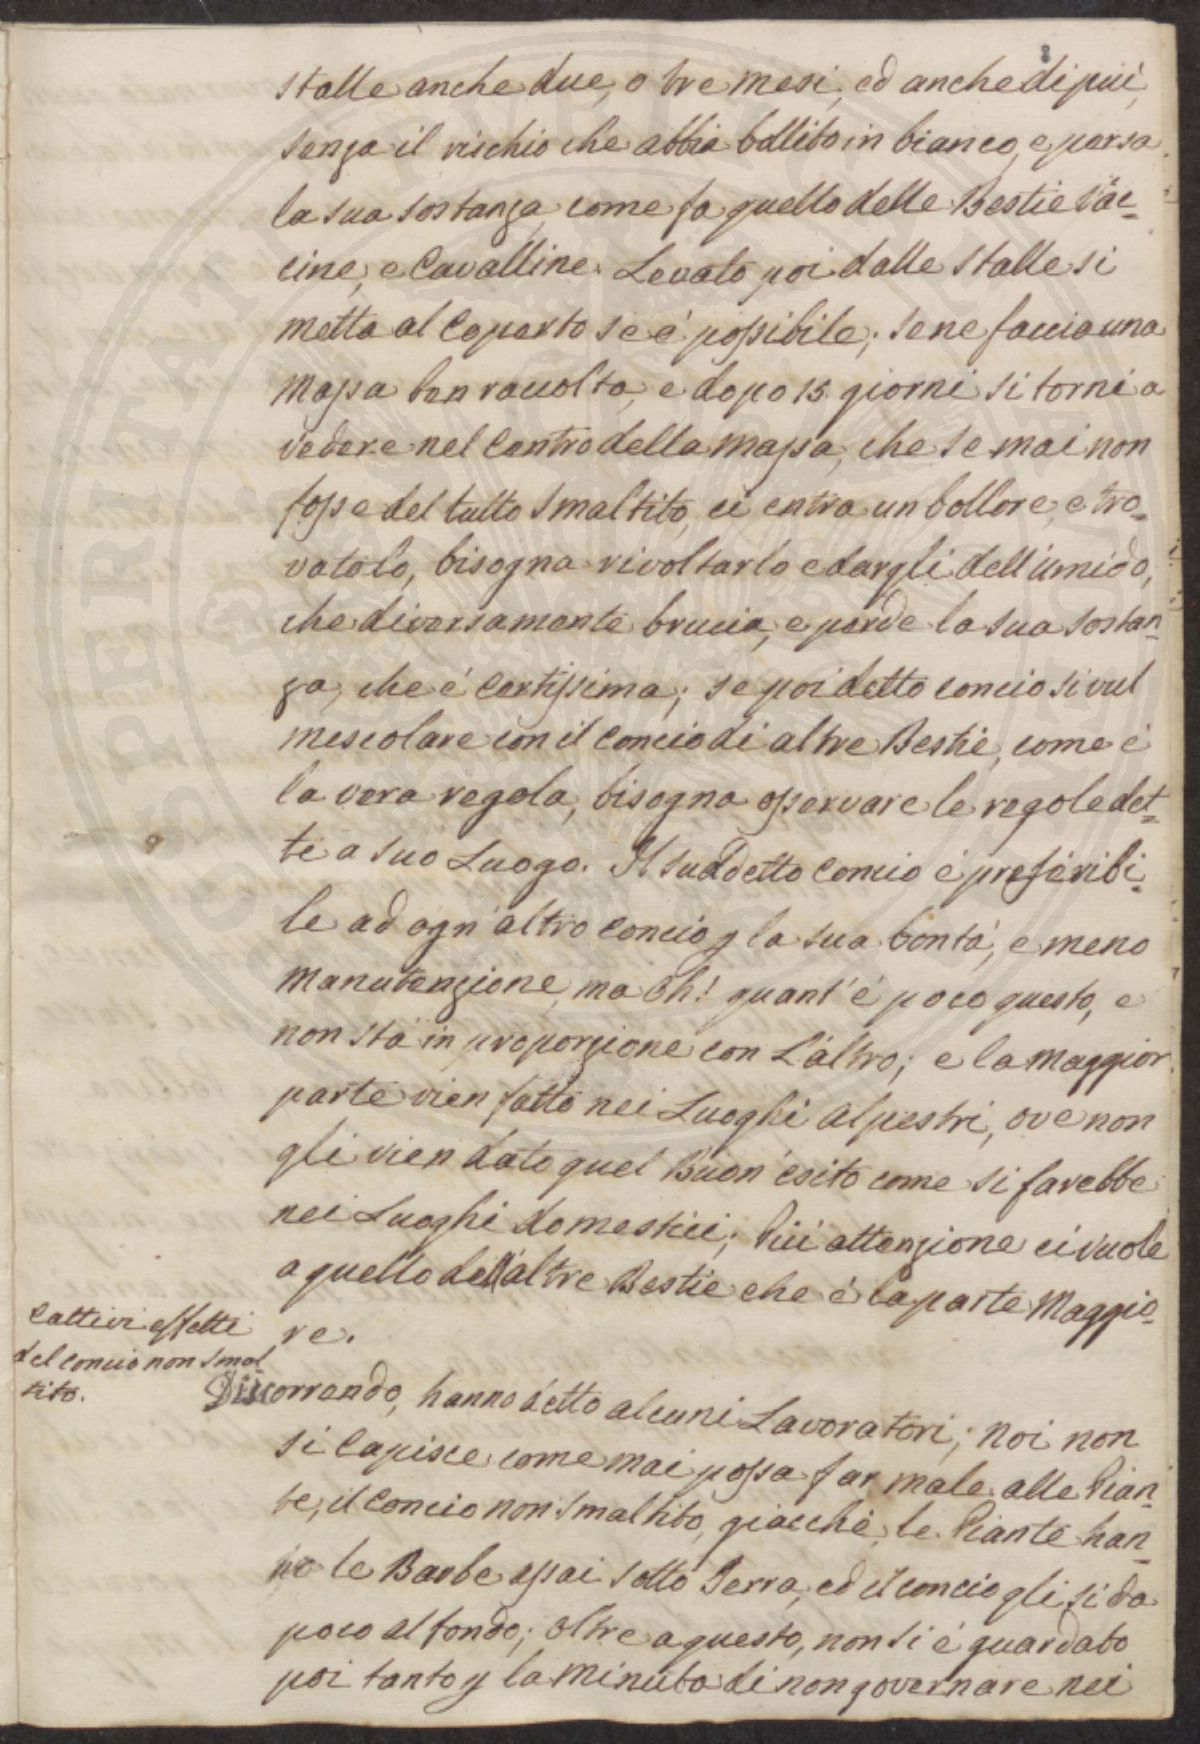 8
stalle anche due, o tre mesi, ed anche di più,
senza il rischio che abbia bollito in bianco, e persa
la sua sostanza, come fa quello delle Bestie Vac=
cine, e Cavalline. Levato poi dalle stalle si
metta al Coperto se è possibile; se ne faccia una
Massa ben raccolta, e dopo 15 giorni si torni a
vedere nel Centro della Massa, che se mai non
fosse del tutto smaltito, ci entra un bollore, e tro=
vatolo, bisogna rivoltarlo e dargli dell'umido,
che diversamente brucia, e perde la sua sostan=
za, che è Certissima; se poi detto concio si vul
mescolare con il Concio di altre Bestie, come è
la vera regola, bisogna osservare le regole det=
te a suo Luogo. Il suddetto Concio è preferibi=
le ad ogn'altro Concio p la sua bontà, e meno
Manutenzione, ma oh! quant'è poco questo, e
non stà in proporzione con L'altro; e la Maggior
parte vien fatto nei Luoghi alpestri, ove non
gli vien dato quel Buon'esito come si farebbe
nei Luoghi domestici; Più attenzione ci vuole
a quello dell'altre Bestie che è la parte Maggio=
re.
Cattivi effetti
del concio non smal=
tito.
Discorrendo, hanno detto alcuni Lavoratori; Noi non
si Capisce come mai possa far male alle Pian=
te, il Concio non smaltito, giacchè le Piante han=
no le Barbe assai sotto Terra, ed il concio gli si da
poco al fondo; oltre a questo, non si è guardato
poi tanto p la Minuta di non governare nei